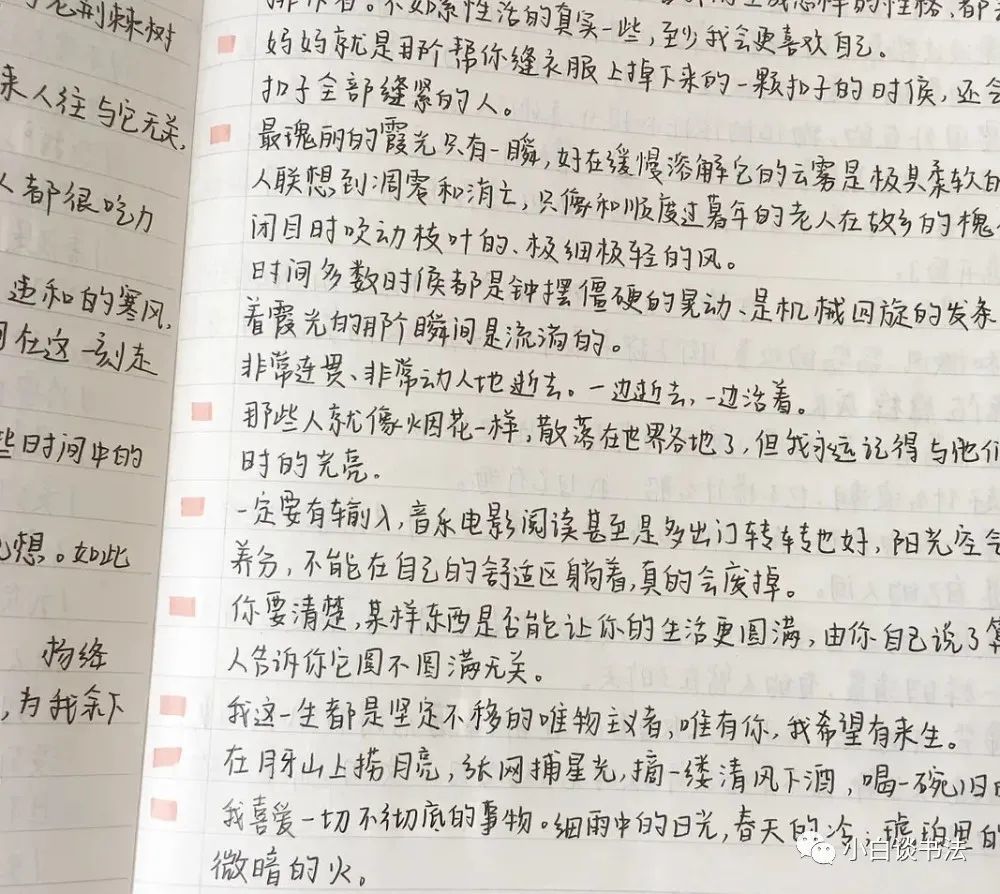 老荆棘树
来人往与它无关,
人都很吃力
违和的寒风,
在这一刻走
些时间中的
想。如此
杨绛
,为我余下
不如索性活的真实一些,至少我会更喜欢自己。
妈妈就是那个帮你缝衣服上掉下来的一颗扣子的时候,还会
扣子全部缝紧的人。
最瑰丽的霞光只有一瞬,好在缓慢溶解它的云雾是极其柔软的
人联想到凋零和消亡,只像和顺度过暮年的老人在故乡的槐
闭目时吹动枝叶的、极细极轻的风。
时间多数时候都是钟摆僵硬的晃动、是机械回旋的发条
着霞光的那个瞬间是流淌的。
非常连贯、非常动人地逝去。一边逝去,一边活着。
那些人就像烟花一样,散落在世界各地了,但我永远记得与他们
时的光亮。
一定要有输入,音乐电影阅读甚至是多出门转转也好,阳光空气
养分,不能在自己的舒适区躺着,真的会废掉。
你要清楚,某样东西是否能让你的生活更圆满,由你自己说了算
人告诉你它圆不圆满无关。
我这一生都是坚定不移的唯物主义者,唯有你,我希望有来生。
在月牙山上捞月亮,张网捕星光,摘一缕清风下酒,喝一碗旧
我喜爱一切不彻底的事物。细雨中的日光,春天的冷,琥珀里的
微暗的火。
小白谈书法